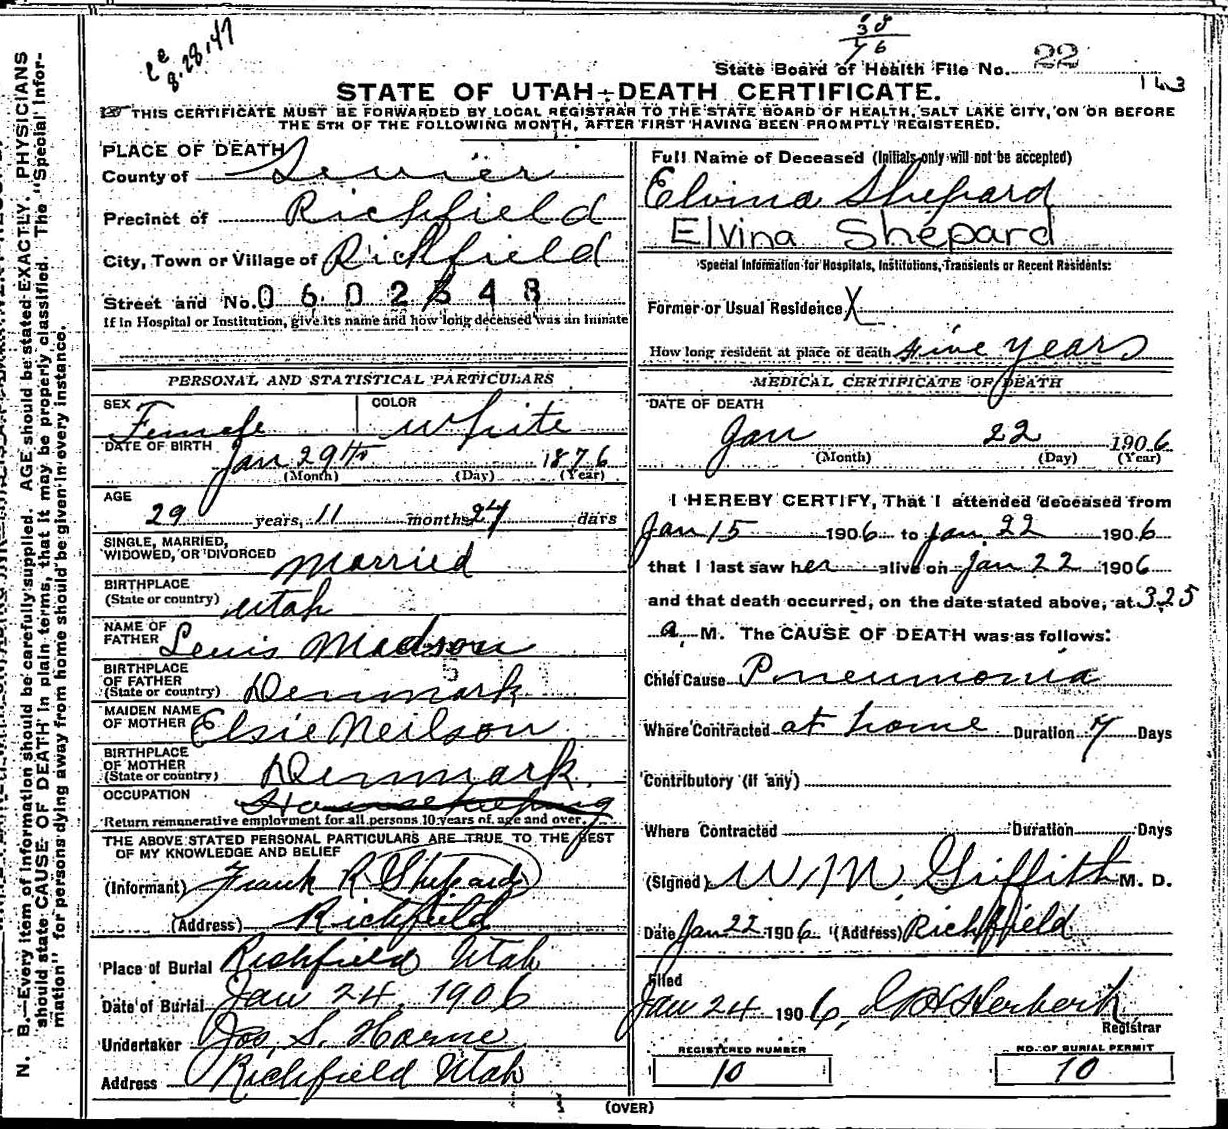 8-28-47
State Board of Health File No. 22
143
STATE OF UTAH-DEATH CERTIFICATE.
THIS CERTIFICATE MUST BE FORWARDED BY LOCAL REGISTRAR TO THE STATE BOARD OF HEALTH, SALT LAKE CITY, ON OR BEFORE
THE 5TH OF THE FOLLOWING MONTH, AFTER FIRST HAVING BEEN PROMPTLY REGISTERED.
PLACE OF DEATH
County of Sevier
Precinct of Richfield
City, Town or Village of Richfield
Street and No. 0602348
If in Hospital or Institution, give its name and how long deceased was an inmate
PERSONAL AND STATISTICAL PARTICULARS
SEX Female COLOR White
DATE OF BIRTH Jan 29th 1876
(Month) (Day) (Year)
AGE
29 years, 11 months 24 days
SINGLE, MARRIED,
WIDOWED, OR DIVORCED Married
BIRTHPLACE
(State or country) Utah
NAME OF
FATHER Lewis Madson
BIRTHPLACE
OF FATHER
(State or country) Denmark
MAIDEN NAME
OF MOTHER Elsie Neilson
BIRTHPLACE
OF MOTHER
(State or country) Denmark
OCCUPATION Housekeeping
Return remunerative employment for all persons 10 years of age and over.
THE ABOVE STATED PERSONAL PARTICULARS ARE TRUE TO THE BEST
OF MY KNOWLEDGE AND BELIEF
(Informant) Frank R Shepard
(Address) Richfield
Place of Burial Richfield Utah
Date of Burial Jan 24, 1906
Undertaker Jos. S. Horne
Address Richfield Utah
Full Name of Deceased (Initials only will not be accepted)
Elvina Shepard
Elvina Shepard
Special Information for Hospitals, Institutions, Transients or Recent Residents:
Former or Usual Residence X
How long resident at place of death five years
MEDICAL CERTIFICATE OF DEATH
DATE OF DEATH
Jan 22 1906
(Month) (Day) (Year)
I HEREBY CERTIFY, That I attended deceased from
Jan 15 1906 to Jan. 22 1906
that I last saw her alive on Jan 22 1906
and that death occurred, on the date stated above, at 3.25
a. M. The CAUSE OF DEATH was as follows:
Chief Cause Pneumonia
Where Contracted at home Duration 7 Days
Contributory (if any)
Where Contracted Duration Days
(Signed) W M Griffith M. D.
Date Jan 22 1906 (Address) Richfield
Filed
Jan 24 1906, Herbert
Registrar
REGISTERED NUMBER
10
NO. OF BURIAL PERMIT
10
(OVER)
N. B.—Every item of information should be carefully supplied. AGE should be stated EXACTLY. PHYSICIANS
should state CAUSE OF DEATH in plain terms, that it may be properly classified. The "Special Infor-
mation" for persons dying away from home should be given in every instance.